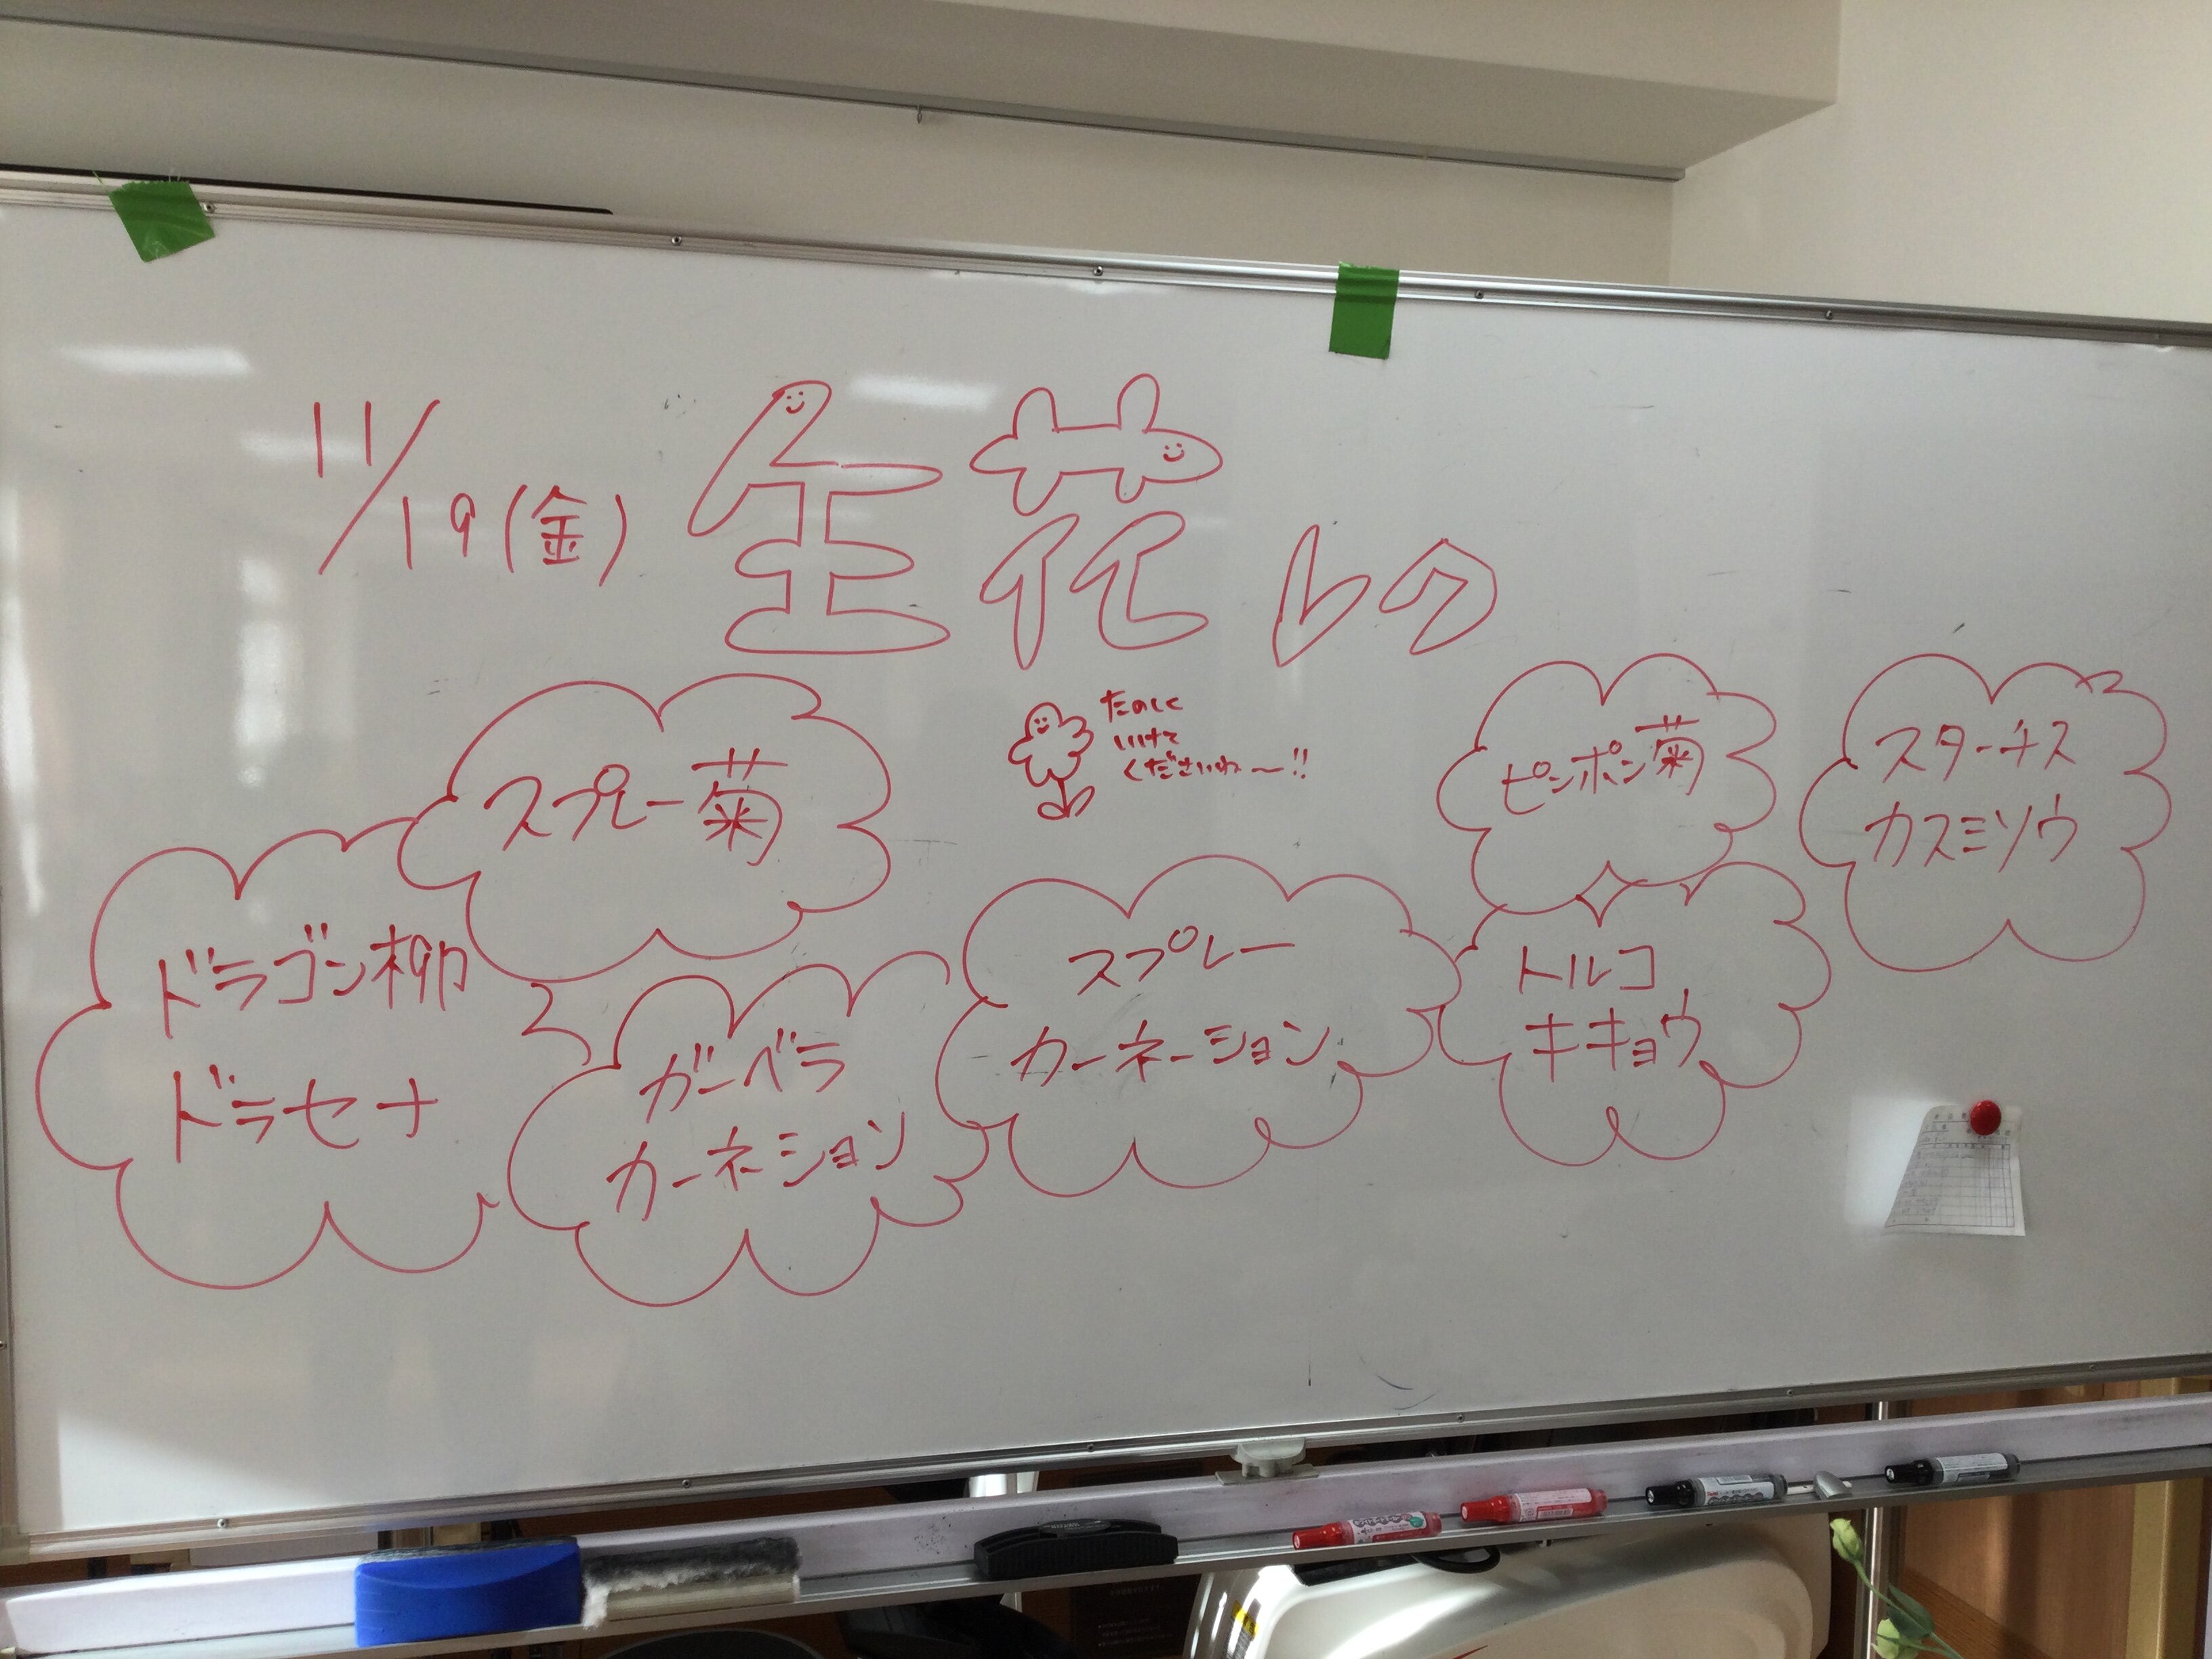 11/19(金) 生花レク
たのしく
いけて
くださいね〜!!
スプレー菊
ドラゴン柳
ドラセナ
ガーベラ
カーネーション
スプレー
カーネーション
ピンポン菊
トルコ
キキョウ
スターチス
カスミソウ